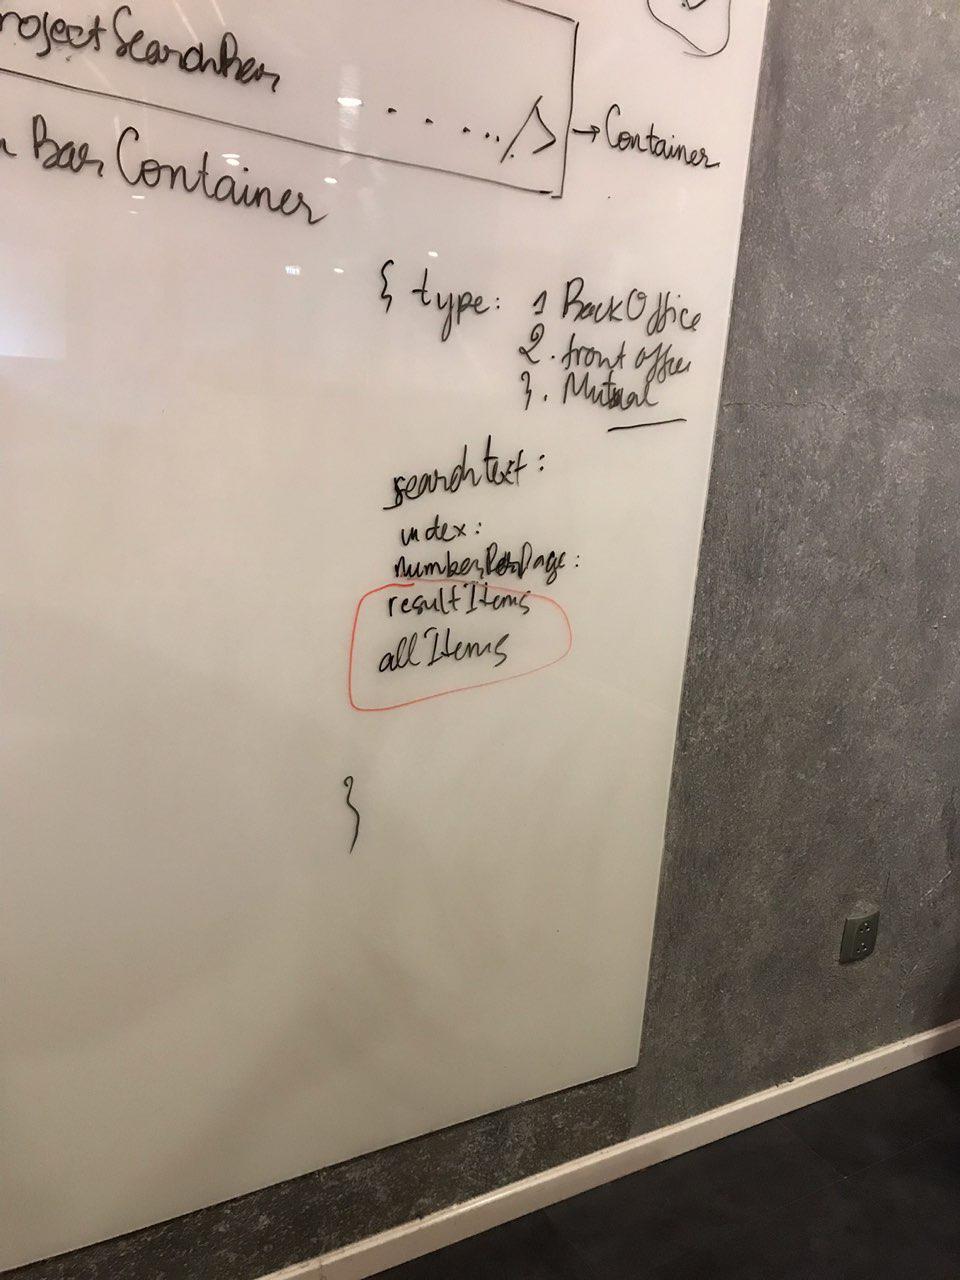 rojectSearchBar
. . ... /> → Container
Bar Container
{ type: 1 BackOffice
2. front office
3. Mutual
searchtext:
index:
numberPerPage:
resultItems
allItems
}